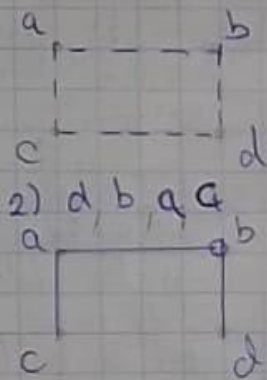 a b
c d
2) d, b, a, c
a b
c d